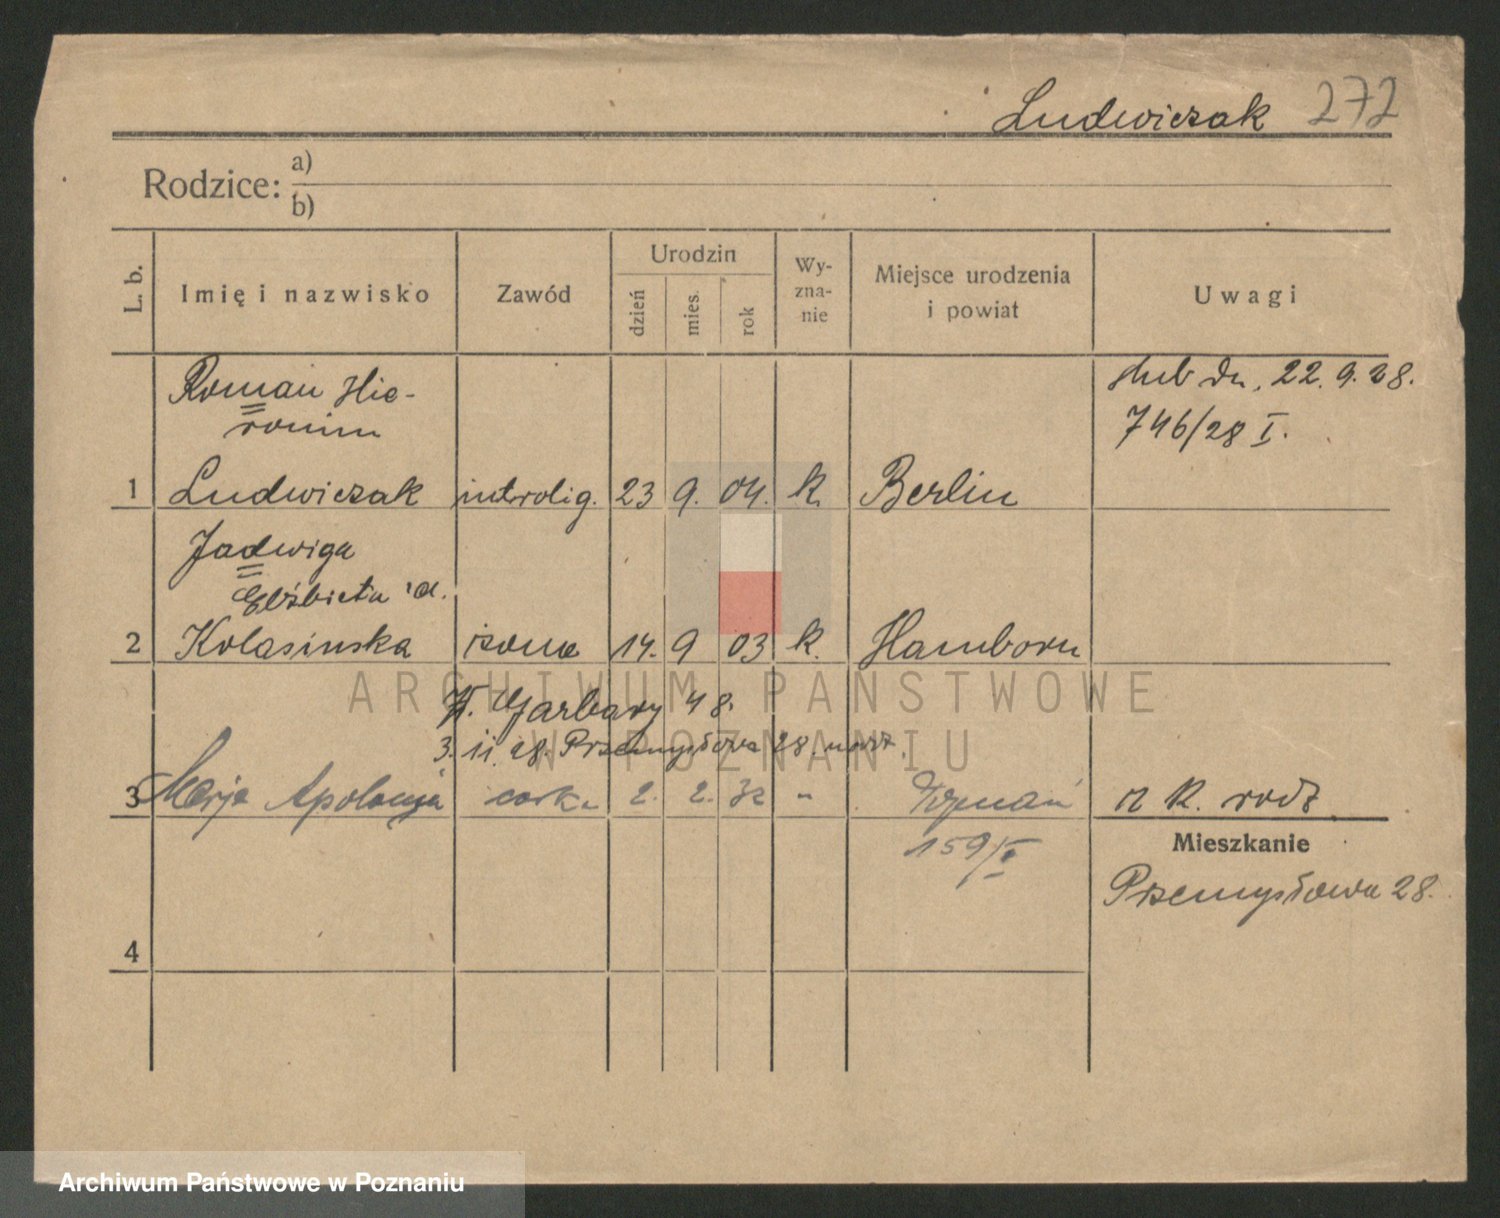 Ludwiczak 272
Rodzice: a)
b)
L. b.
Imię i nazwisko
Zawód
Urodzin
dzień
mies.
rok
Wy-
zna-
nie
Miejsce urodzenia
i powiat
Uwagi
Roman Hie-
ronim
ślub dn. 22.9.28.
746/28 I.
1 Ludwiczak introlig. 23 9. 04. k. Berlin
Jadwiga
Elżbieta
2 Kolasinska żona 14. 9 03 k. Hamborn
Garbary 48.
3. 11. 28. Przemysłowa 28.
3 Marja Apolonja córka 2. 2. 32 " Poznań n k. rodz
159/I
Mieszkanie
Przemysłowa 28.
4
ARCHIWUM PAŃSTWOWE
W POZNANIU
Archiwum Państwowe w Poznaniu